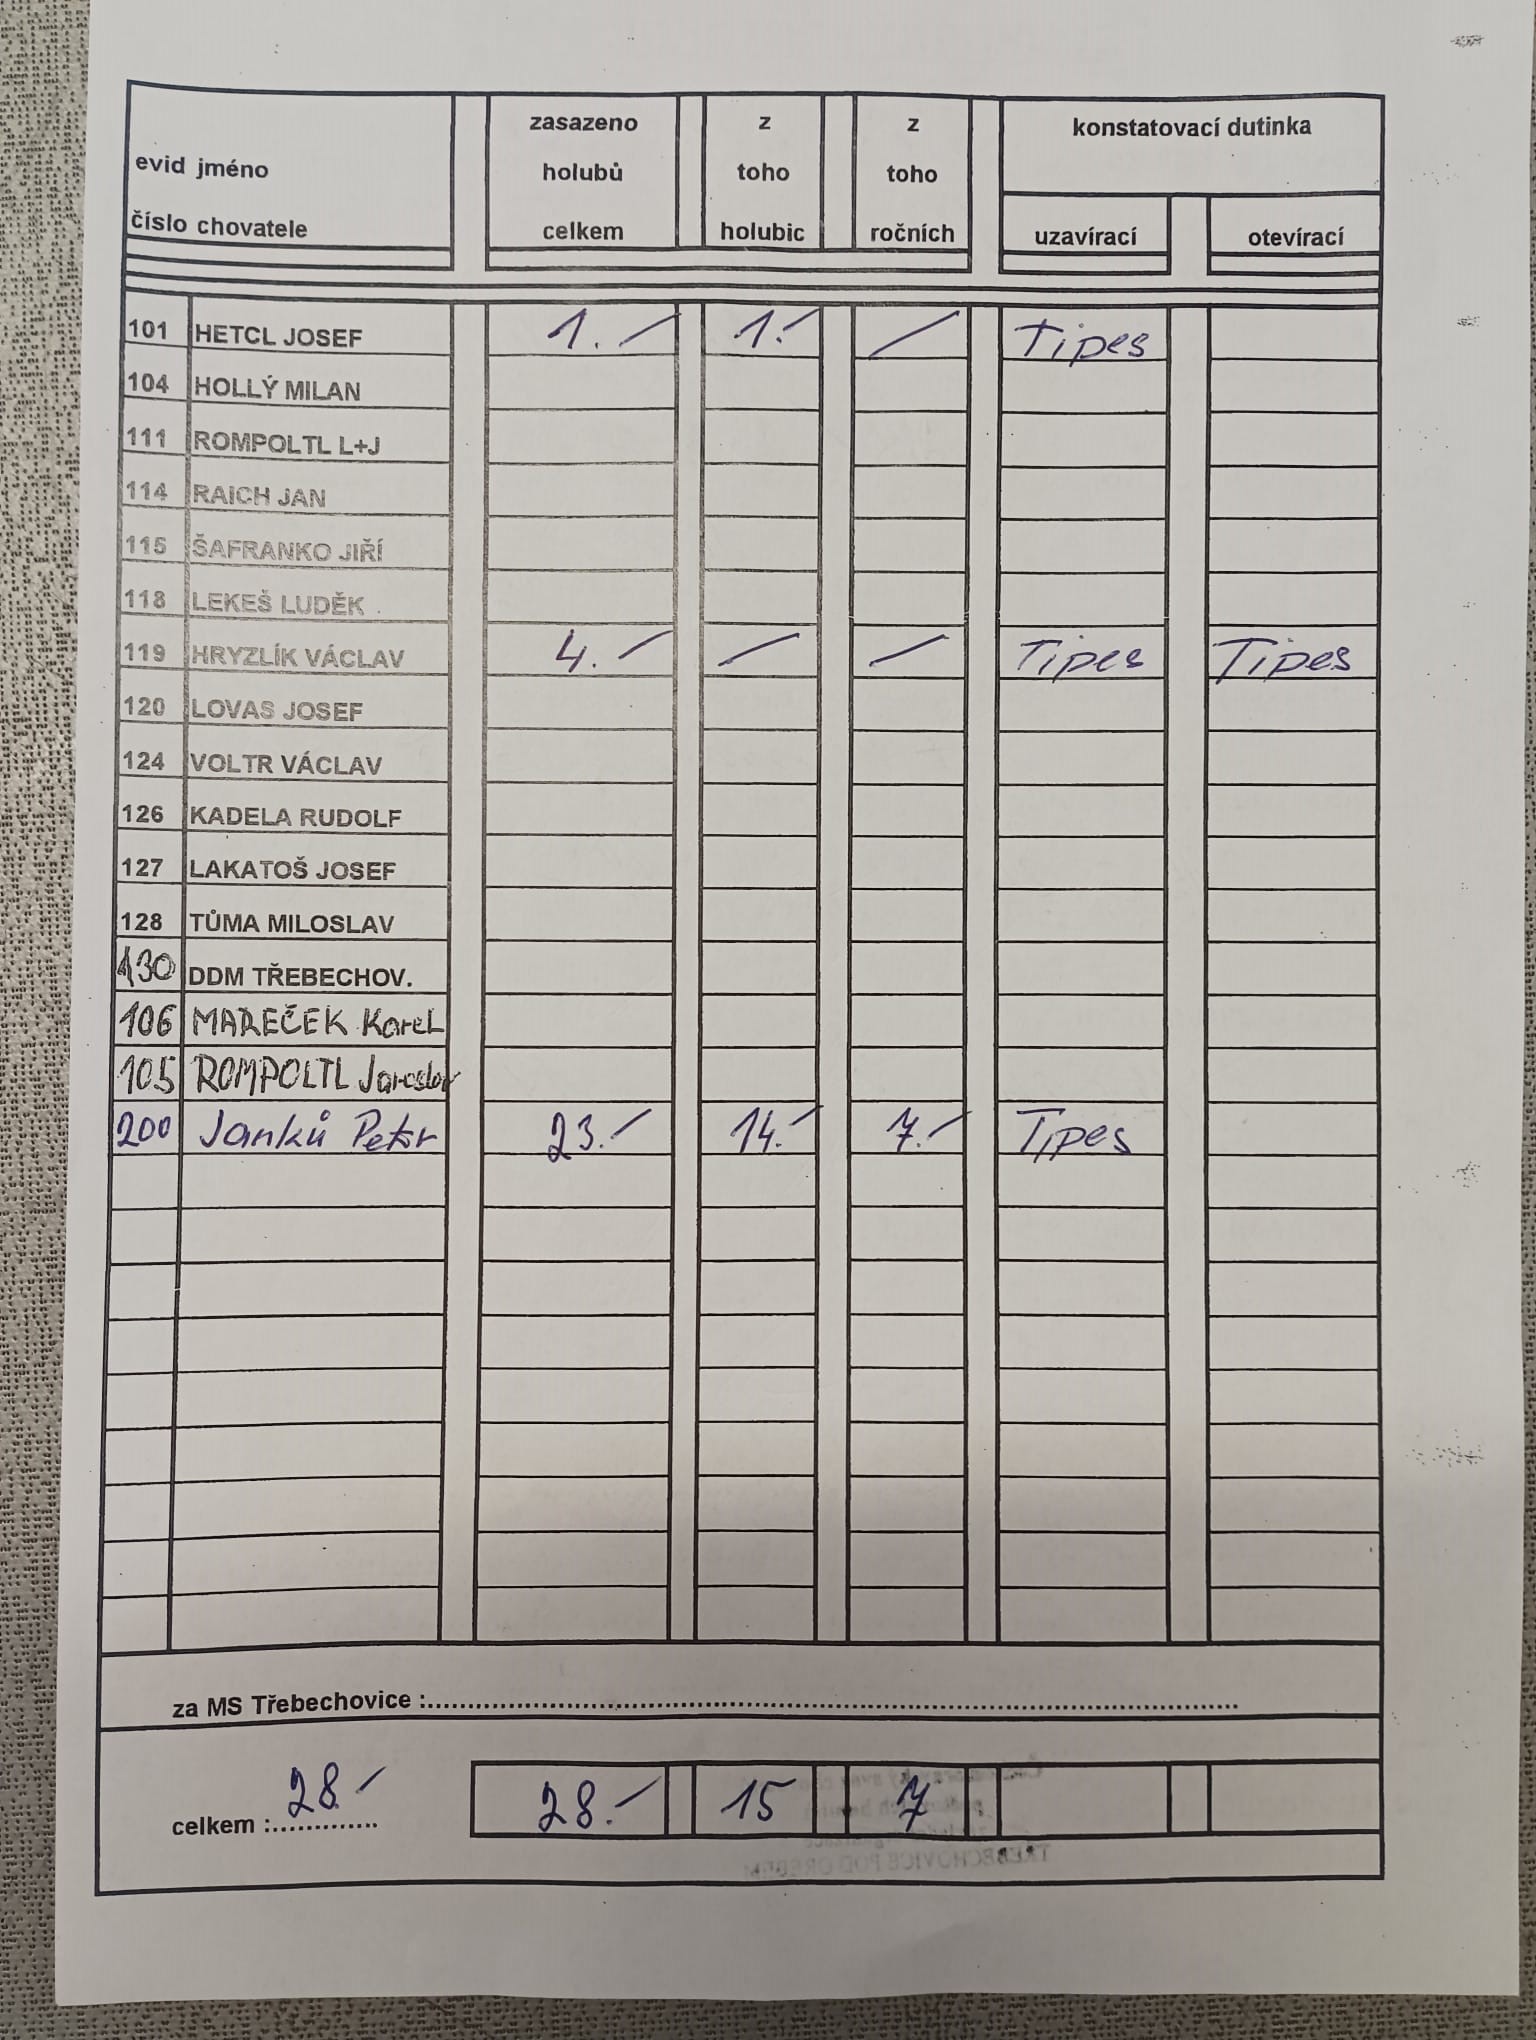 evid jméno
číslo chovatele
zasazeno
holubů
celkem
z
toho
holubic
z
toho
ročních
konstatovací dutinka
uzavírací
otevírací
101 HETCL JOSEF 1.— 1.— — Tipes
104 HOLLÝ MILAN
111 ROMPOLTL L+J
114 RAICH JAN
115 ŠAFRANKO JIŘÍ
118 LEKEŠ LUDĚK
119 HRYZLÍK VÁCLAV 4.— — — Tipes Tipes
120 LOVAS JOSEF
124 VOLTR VÁCLAV
126 KADELA RUDOLF
127 LAKATOŠ JOSEF
128 TŮMA MILOSLAV
130 DDM TŘEBECHOV.
106 MAREČEK Karel
105 ROMPOLTL Jaroslav
200 Janků Petr 23.— 14.— 7.— Tipes
za MS Třebechovice :..........
celkem : 28.— 28.— 15 7